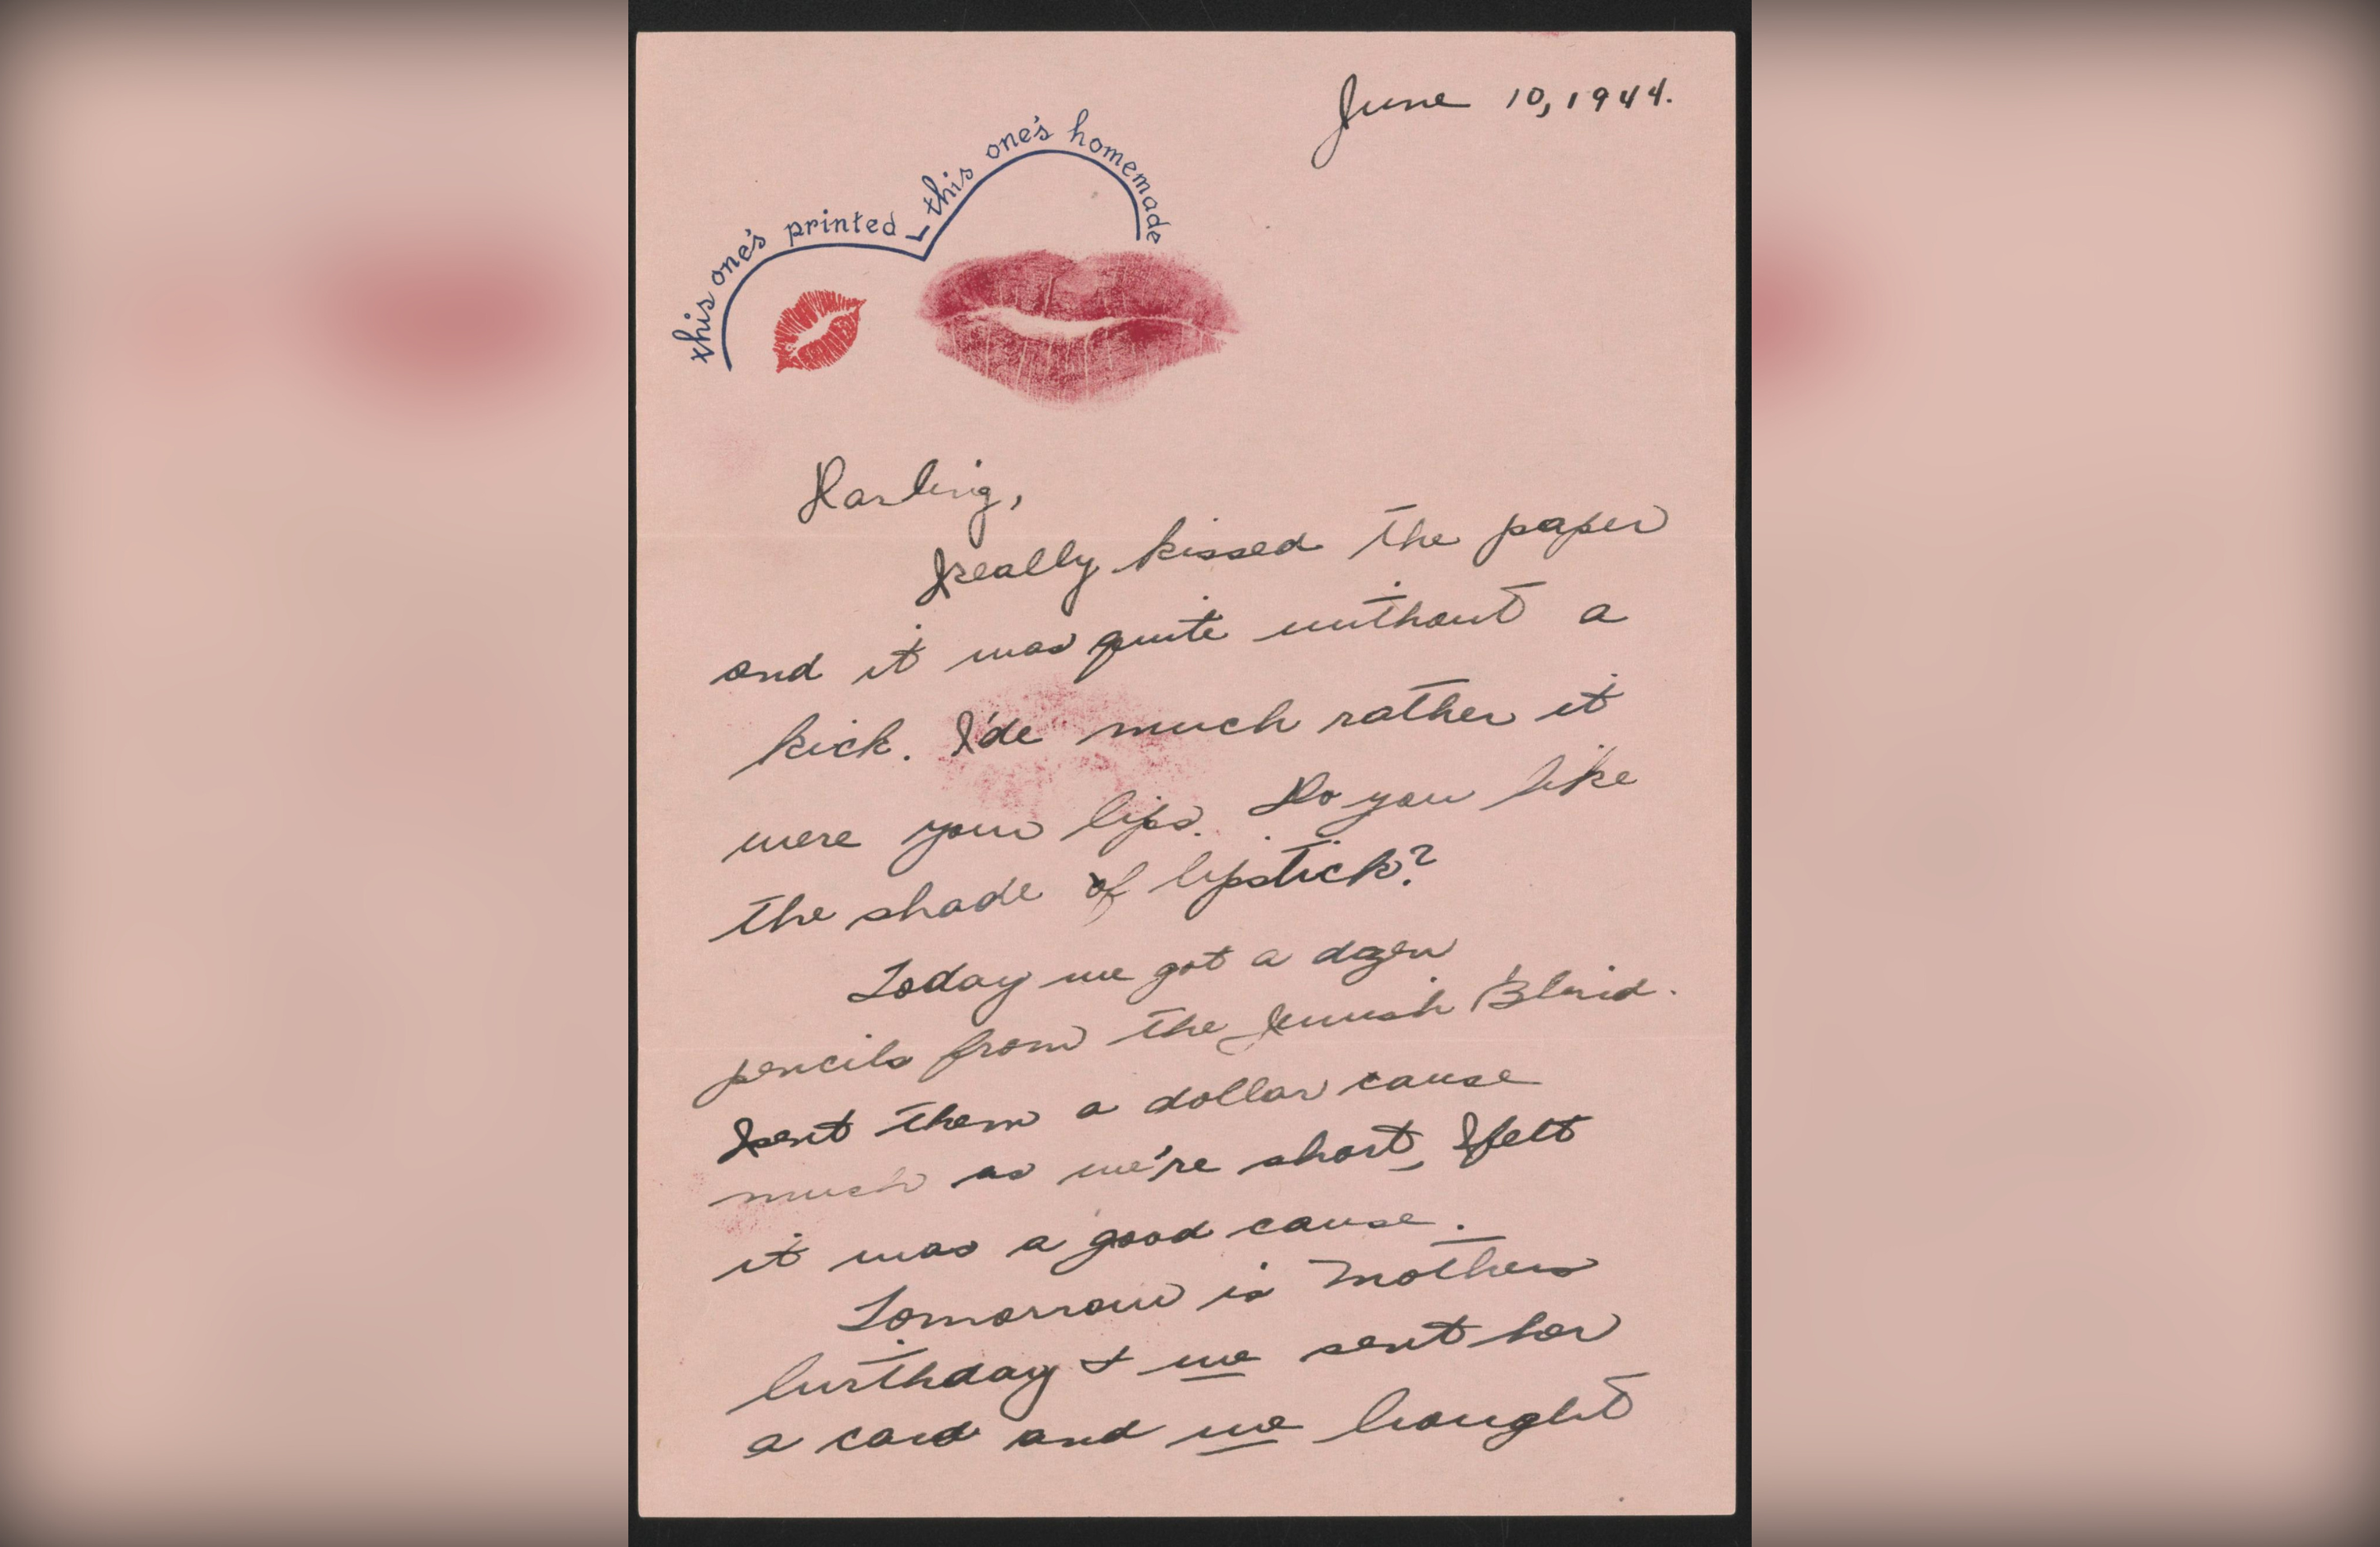 June 10, 1944.
this one's printed this one's homemade
Darling,
I really kissed the paper
and it was quite without a
kick. I'de much rather it
were your lips. Do you like
the shade of lipstick?
Today we got a dozen
pencils from the Jewish Blind.
I sent them a dollar cause
much as we're short, I felt
it was a good cause.
Tomorrow is Mothers
birthday & we sent her
a card and we bought